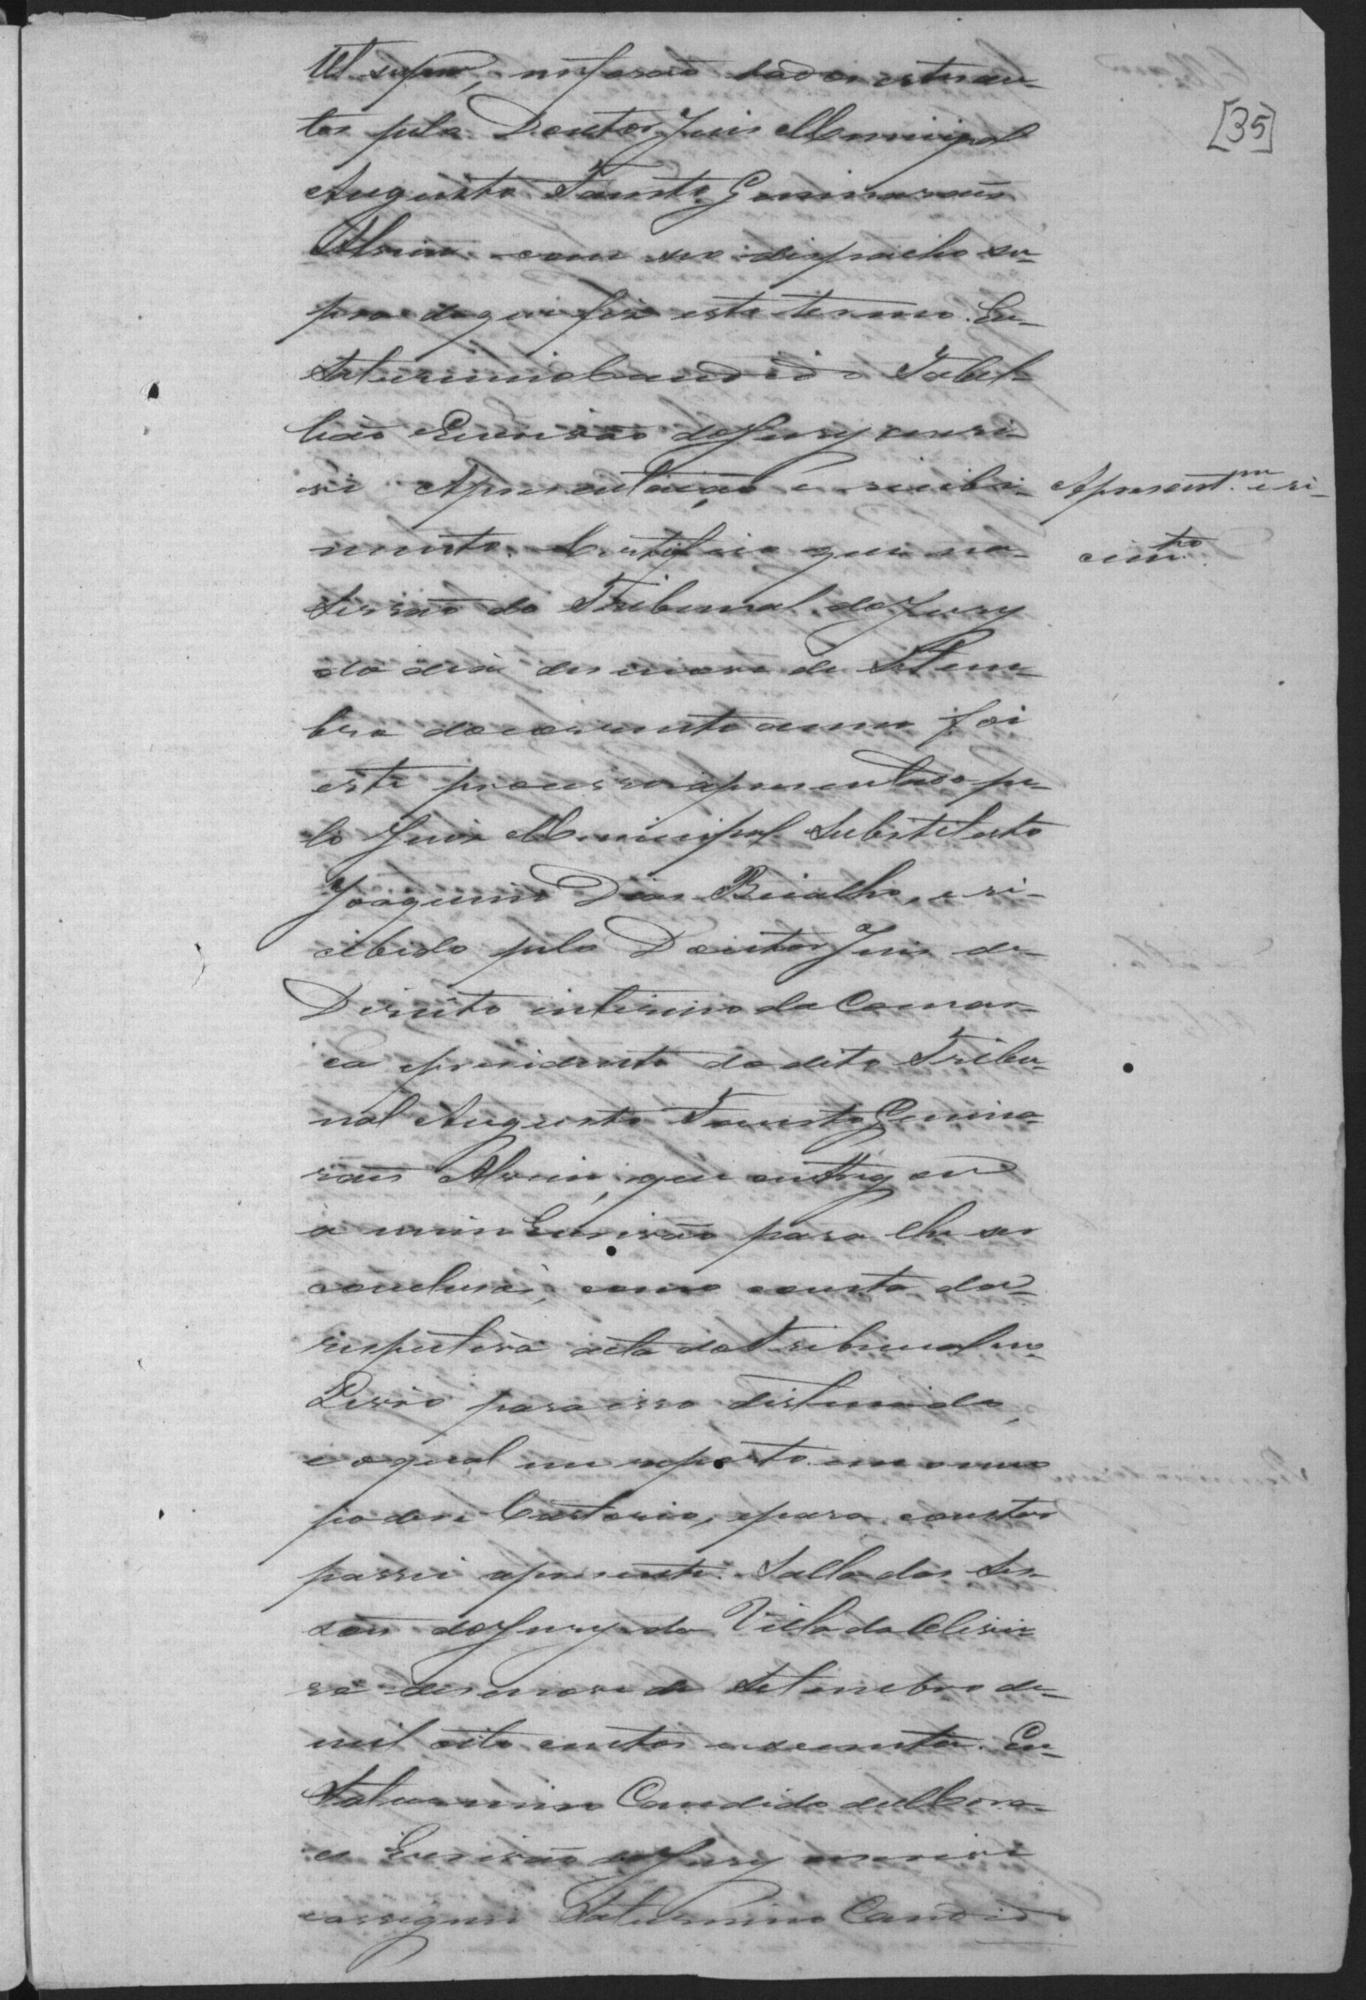 [35]
Ut supra, me forão dados estes au-
tos pelo Doutor Juis Municipal
Augusto Fausto Guimaraẽs
Alvim com seo dispacho su-
pra do que fiz este termo. Eu
Saturnino Candido Tabel-
lião Escrivão do Jury escre-
vi Apresentação e recibi-
mento. Certifico que na
Sessão do Tribunal do Jury
do dia desenove de Setem-
bro do corrente anno foi
este processo apresentado pe-
lo Juis Municipal Substituto
Joaquim Dias Bicalho, e re-
cibido pelo Doutor Juis de
Direito interino da Comar-
ca presidente do dito Tribu-
nal Augusto Fausto Guima-
raẽs Alvim, que entregou
a mim Escrivão para lhe ser
concluso, como consta da
respectiva acta do Tribunal no
Livro para isso destinado,
e o qual me reporto em meu
poder e Cartorio, e para constar
passei a presente. Salla das Ses-
soẽs do Jury da Villa da Olivei-
ra desenove de Setembro de
mil oito centos e secenta. Eu
Saturnino Candido de Mora-
es Escrivão do Jury escrevi
e assignei Saturnino Candido
Apresent.m e re-
cim.to